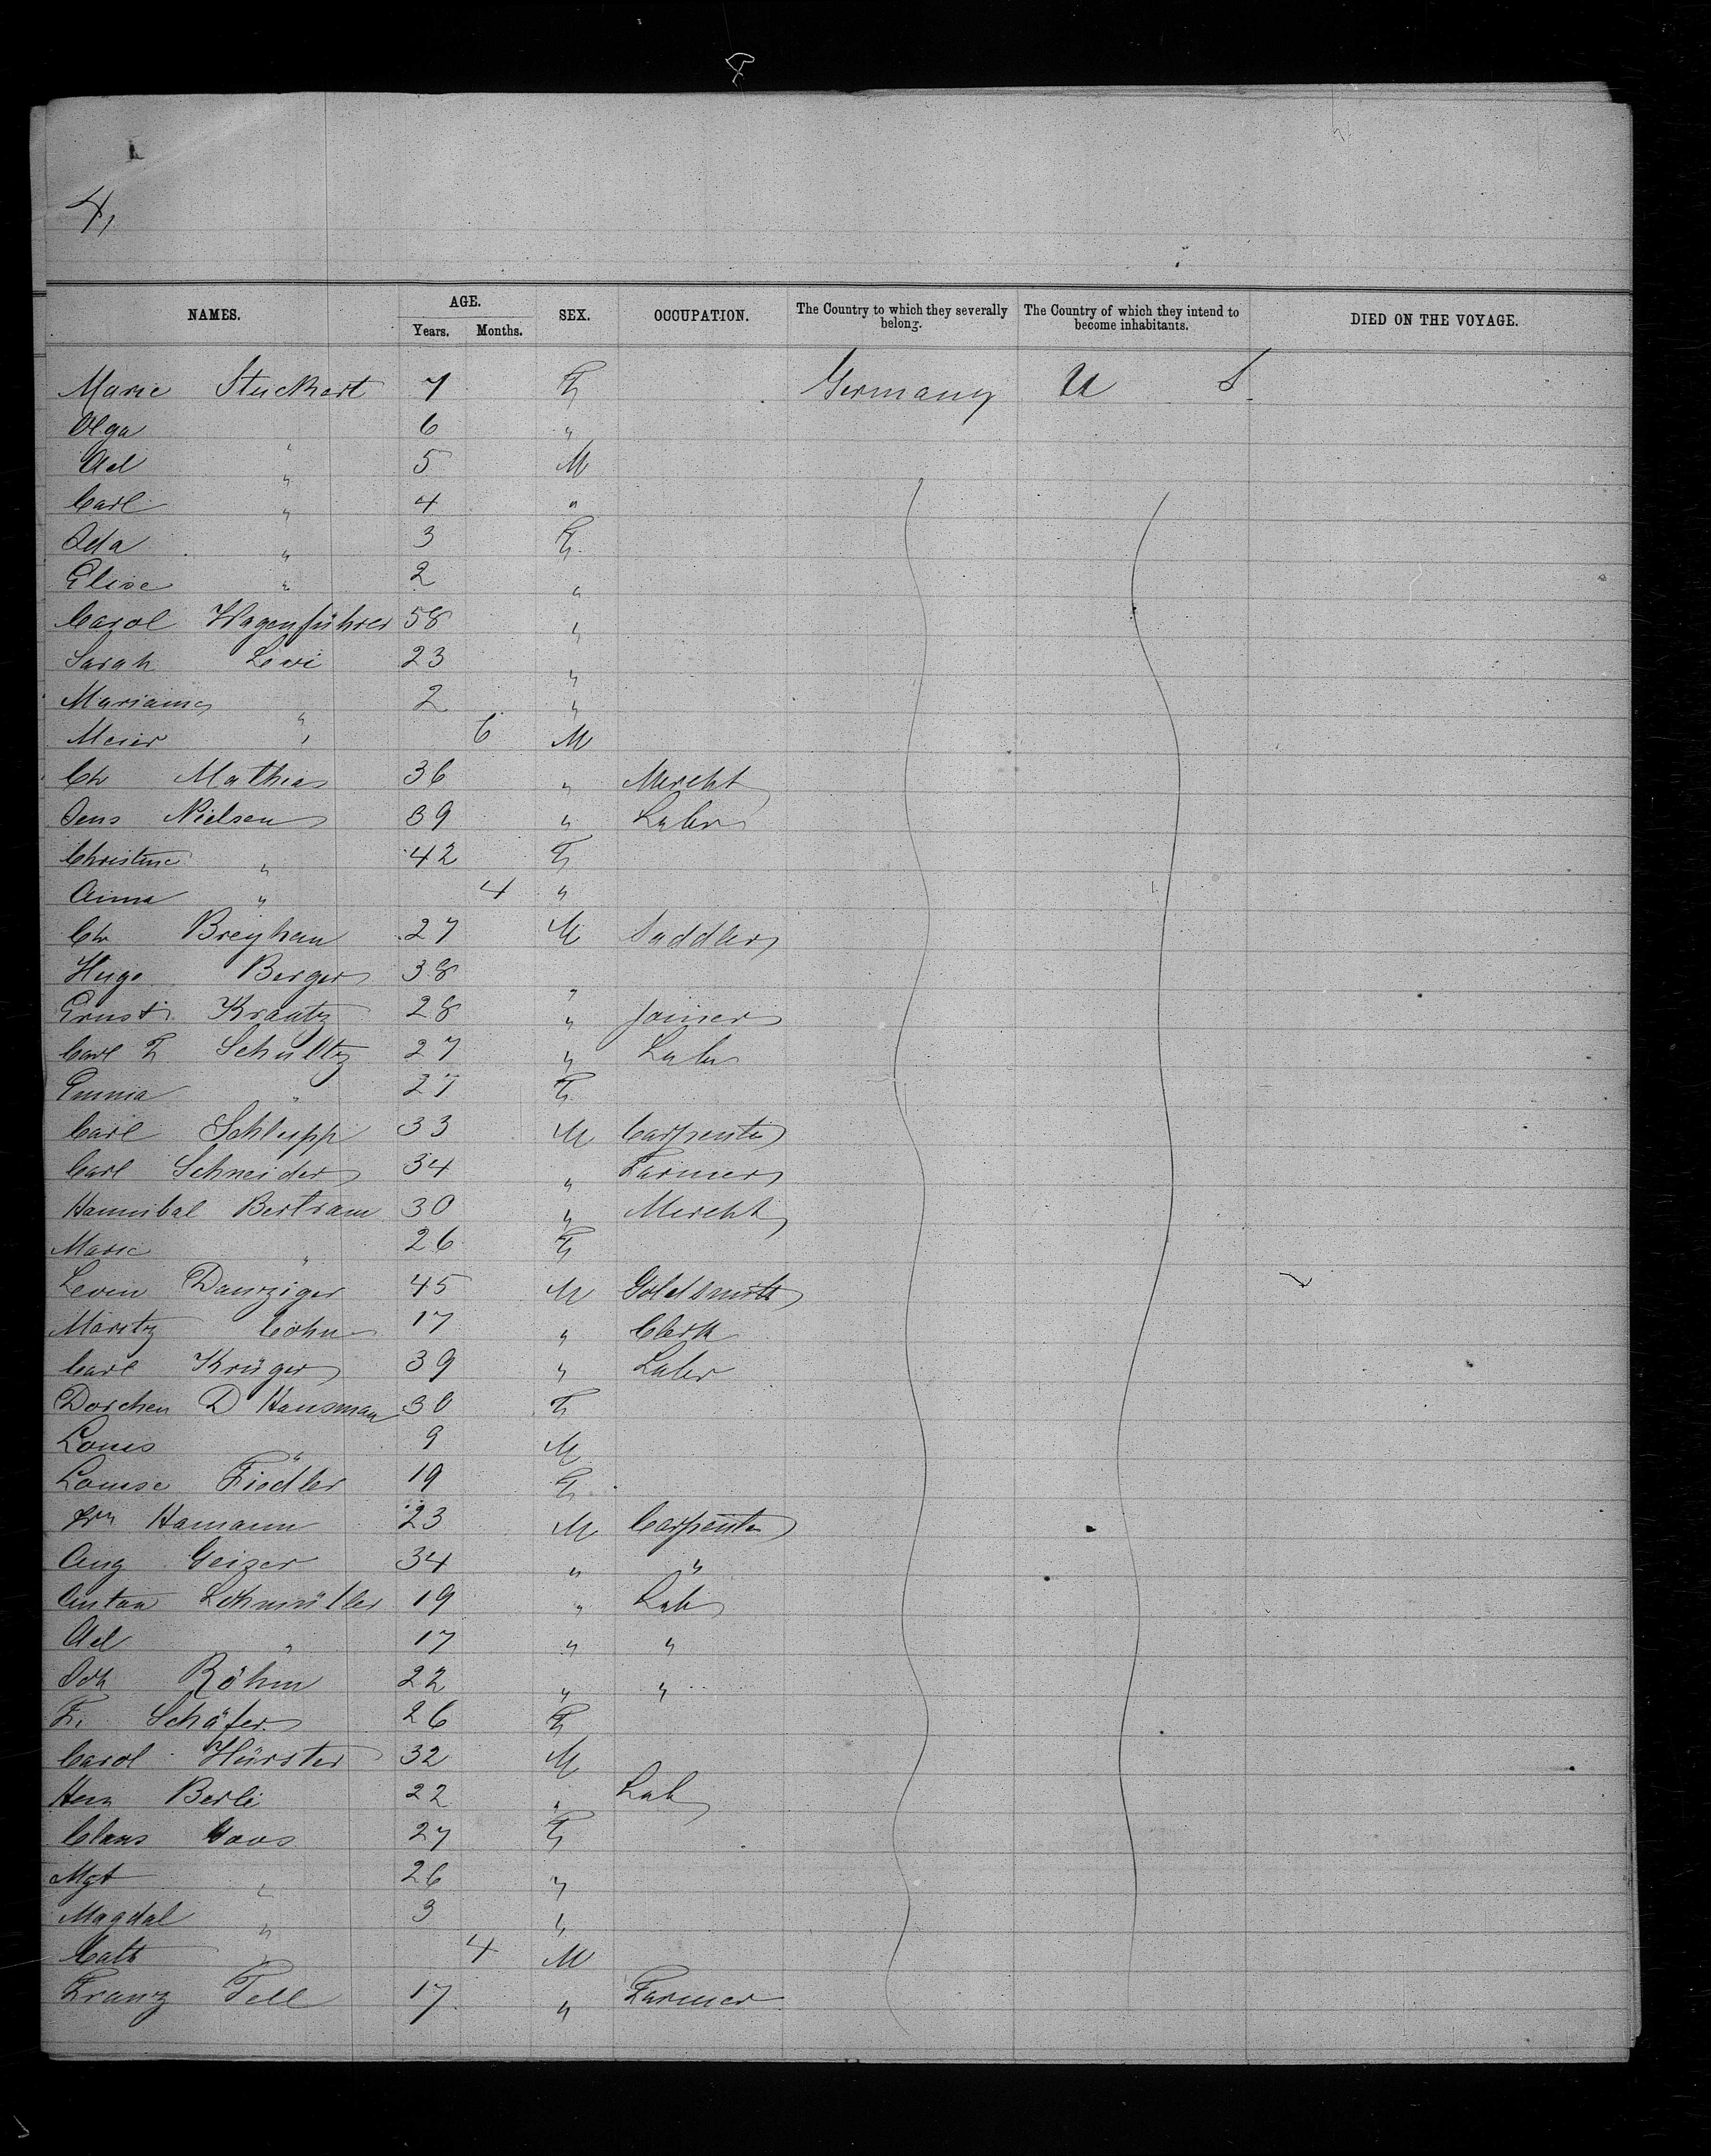 4,
NAMES. AGE. SEX. OCCUPATION. The Country to which they severally belong. The Country of which they intend to become inhabitants. DIED ON THE VOYAGE.
Years. Months.
Marie Stuckert 7 F Germany U S
Olga " 6 "
Ad " 5 M
Carl " 4 "
Ida " 3 F
Elise " 2 "
Carol Wagenführer 58 "
Sarah Levi 23 "
Mariam " 2 "
Meier " 6 M
Ch Mathias 36 " Mercht
Jens Nielsen 39 " Labr
Christine " 42 F
Anna " 4 "
Ch Breyhan 27 M Saddler
Hugo Berger 38 "
Ernst Krantz 28 " Joiner
Carl F Schultz 27 " Labr
Emma " 27 F
Carl Schlupp 33 M Carpenter
Carl Schneider 34 " Farmer
Hannibal Bertram 30 " Mercht
Marie " 26 F
Levin Danziger 45 M Goldsmith
Moritz Cohn 17 " Clerk
Carl Krüger 39 " Labr
Dorchen D Hausman 30 F
Louis " 9 M
Louise Fiedler 19 F
Hamann 23 M Carpenter
Aug Geizer 34 " "
Anton Lohmüller 19 " Lab
Ad " 17 " "
Joh Röhm 22 " "
F. Schäfer 26 F
Carol Hürster 32 M
Hen Berli 22 " Lab
Claus Goos 27 F
Mgt " 26 "
Magdal " 3 "
Cath " 4 M
Franz Tell 17 " Farmer